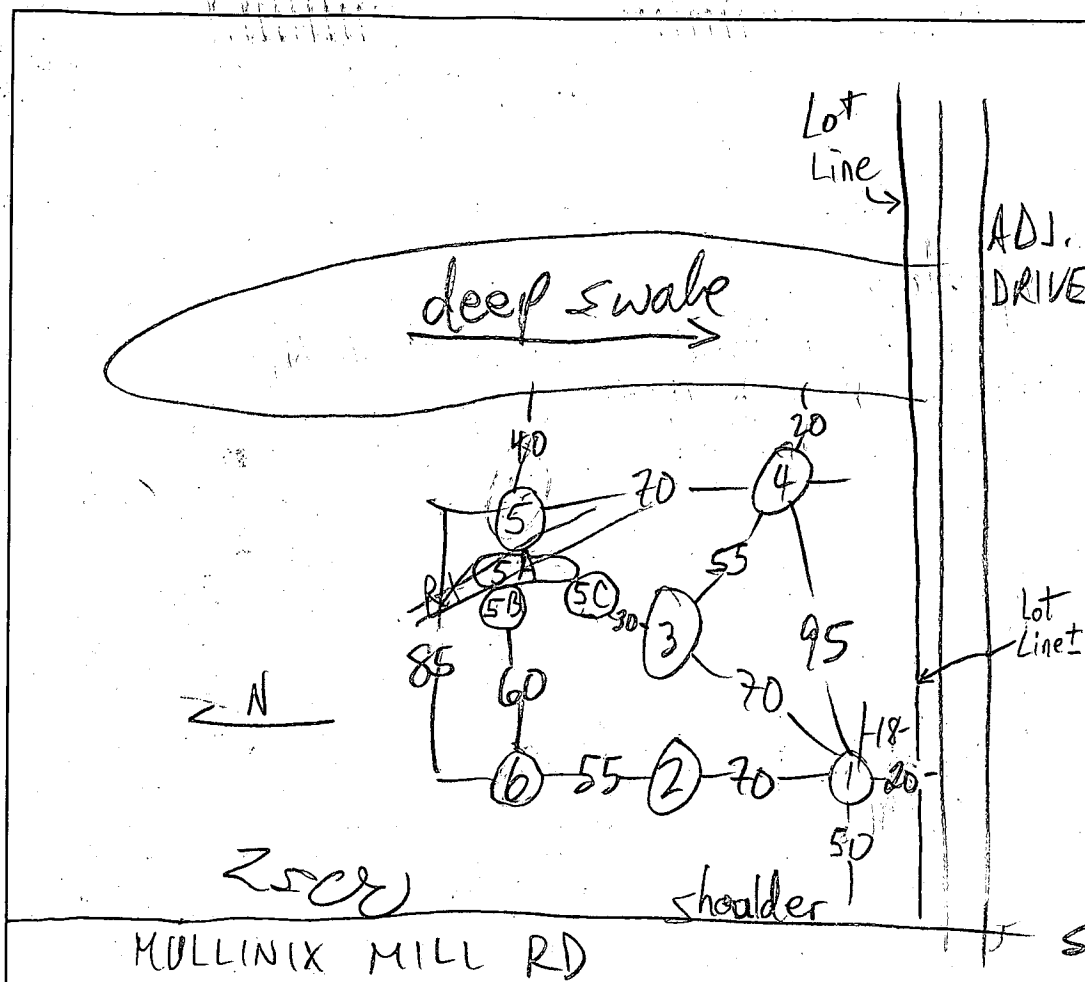 Lot
Line
ADJ.
DRIVE
deep swale
40
20
5
70
4
5A
55
5B
5C
30
3
95
Lot
Line±
85
60
70
N
18
6
55
2
70
1
20
50
shoulder
MULLINIX MILL RD
S